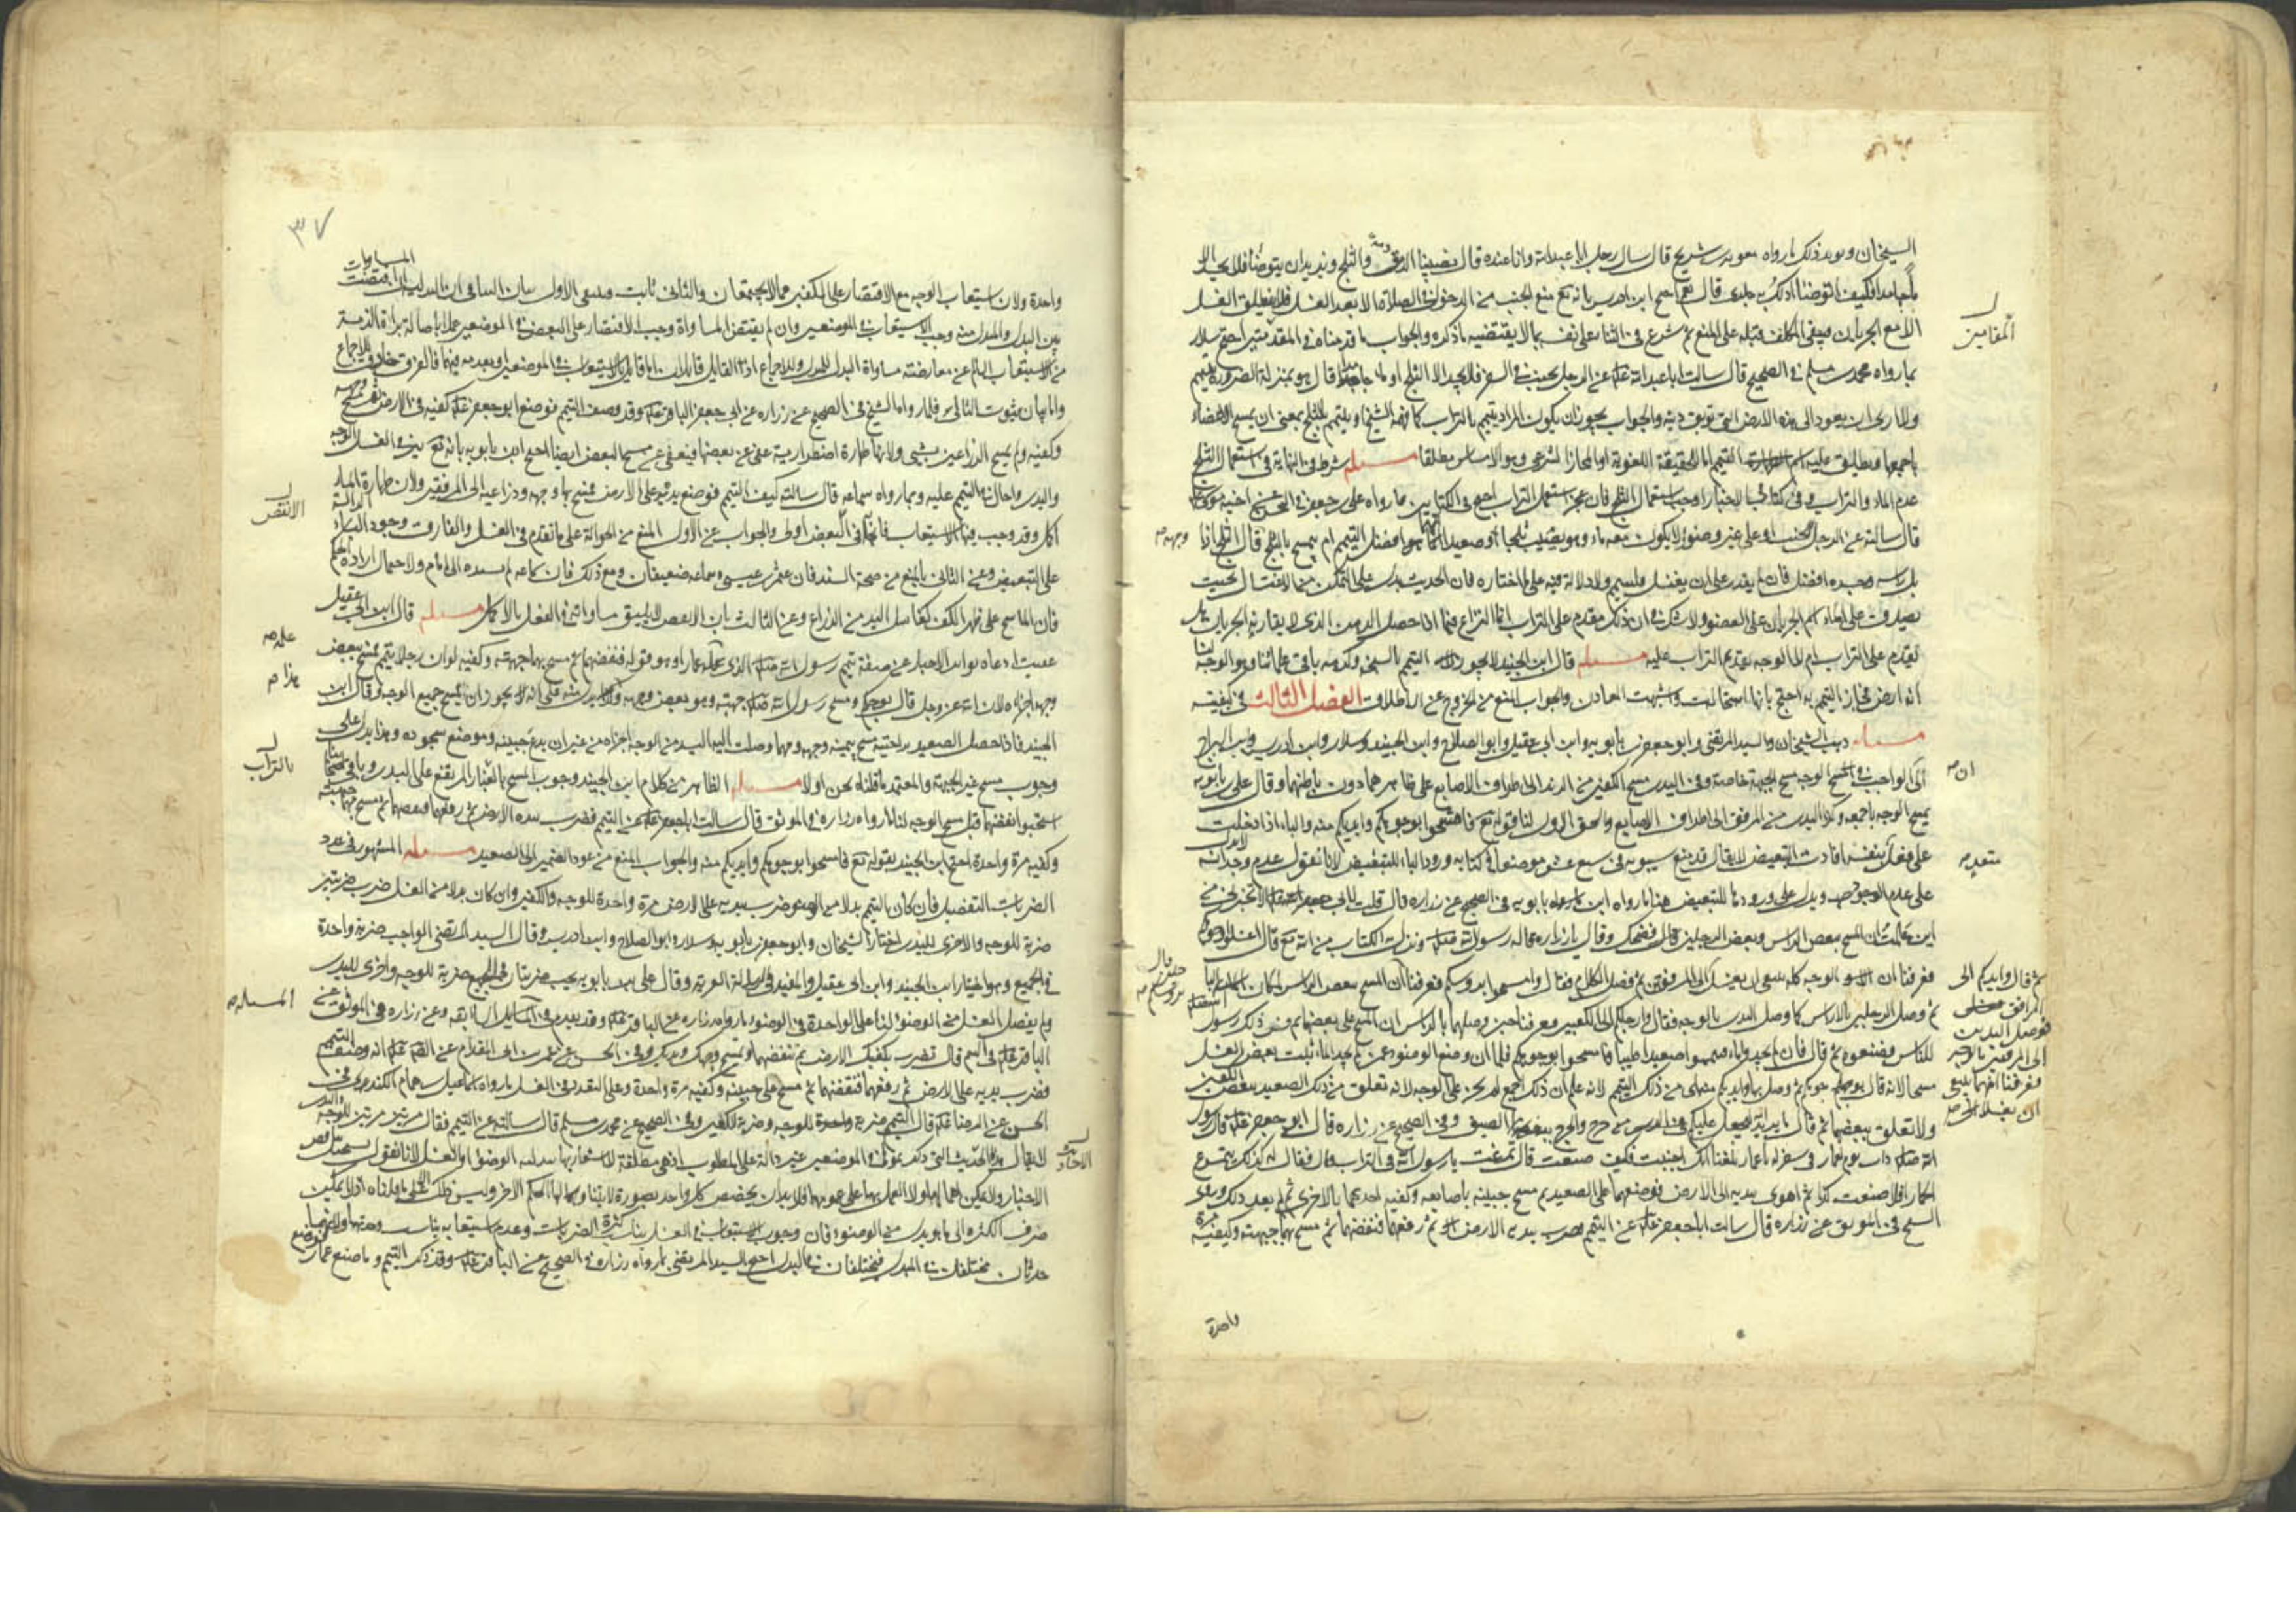 الشيخان ويؤيد ذلك ما رواه معوية بن شريح قال سال رجل ابا عبدالله وانا عنده قال يصيبنا الدمق والثلج ونريد ان نتوضأ فلا نجد الا
ماء جامدا فكيف اتوضأ ادلك به جلدي قال نعم احتج ابن ادريس بانه تع منع الجنب من الدخول في الصلاة الا بعد الغسل فلا يطلق الغسل
الا مع الجريان فيبقى المكلف قبله على المنع ثم شرع في الثناء على نفسه بما لا يقتضيه ما ذكره والجواب ما قدمناه في المقدمتين احتج سلار
بما رواه محمد بن مسلم في الصحيح قال سالت ابا عبدالله عن الرجل يجنب في السفر فلا يجد الا الثلج او ماء جامدا قال هو بمنزلة الضرورة يتيمم
ولا ارى ان يعود الى هذه الارض التي توبق دينه والجواب يجوز ان يكون المراد يتيمم بالتراب كما فهمه الشيخ او يتيمم بالثلج بمعنى ان يمسح الاعضاء
باجمعها ويطلق عليه اسم التيمم اما للحقيقة اللغوية او المجاز الشرعي وهو الامساس مطلقا مسئله شرط في النهاية في استعمال الثلج
عدم الماء والتراب وفي كتابي الاخبار اوجب استعمال الثلج فان عجز استعمل التراب احتج في الكتابين بما رواه علي بن جعفر في الصحيح عن اخيه موسى
قال سالته عن الرجل الجنب او على غير وضوء لا يكون معه ماء وهو يصيب ثلجا او صعيدا ايهما افضل التيمم ام يمسح بالثلج قال الثلج اذا
بل راسه وجسده افضل فان لم يقدر على ان يغتسل فليتيمم ولا دلالة فيه على ما اختاره فان الحديث يدل على التمكن من الاغتسال بحيث
يصدق على الماء اسم الجريان على العضو ولا شك في ان ذلك مقدم على التراب انما النزاع فيما اذا حصل الدهن الذي لا يقارنه الجريان هل
يقدم على التراب ام لا الوجه تقديم التراب عليه مسئله قال ابن الجنيد لا يجوز التيمم بالسبخة وكرهه باقي علمائنا وهو الوجه لنا
انه ارض فجاز التيمم به احتج بانها استحالت واشبهت المعادن والجواب المنع من الخروج عن الاطلاق الفصل الثالث في كيفيته
مسئله ذهب الشيخان والسيد المرتضى وابو جعفر بن بابويه وابن ابي عقيل وابو الصلاح وابن الجنيد وسلار وابن ادريس وابن البراج
الى الواجب في مسح الوجه مسح الجبهة خاصة وفي اليدين مسح الكفين من الزند الى اطراف الاصابع على ظاهرهما دون باطنهما وقال علي بن بابويه
يمسح الوجه باجمعه وكذا اليدين من المرفق الى اطراف الاصابع والحق الاول لنا قوله تع فامسحوا بوجوهكم وايديكم منه والباء اذا دخلت
على فعل بنفسه افادت التبعيض لا يقال قد منع سيبويه في سبعة عشر موضعا في كتابه ورود الباء للتبعيض لانا نقول عدم وجدانه لا يدل
على عدم الوجود ويدل على ورودها للتبعيض هنا ما رواه ابن بابويه في الصحيح عن زراره قال قلت لابي جعفر الا تخبرني من
اين علمت ان المسح ببعض الراس وبعض الرجلين قال فضحك وقال يا زراره قاله رسول الله ونزل به الكتاب من الله تع قال اغسلوا وجوهكم
فعرفنا ان الوجه كله ينبغي ان يغسل الى المرفقين ثم فصل الكلام فقال وامسحوا برؤسكم فعرفنا ان المسح ببعض الراس لمكان الباء
ثم وصل الرجلين بالراس كما وصل اليدين بالوجه فقال وارجلكم الى الكعبين فعرفنا حين وصلها بالراس ان المسح على بعضها ثم فسر ذلك رسول الله
للناس فضيعوه ثم قال فان لم تجدوا ماء فتيمموا صعيدا طيبا فامسحوا بوجوهكم فلما ان وضع الوضوء عمن لم يجد الماء اثبت بعض الغسل
مسحا لانه قال بوجوهكم ثم وصل بها وايديكم منه اي من ذلك التيمم لانه علم ان ذلك اجمع لم يجر على الوجه لانه تعلق من ذلك الصعيد ببعض الكفين
ولا تعلق ببعضها ثم قال ما يريد الله ليجعل عليكم في الدين من حرج والحرج الضيق وفي الصحيح عن زراره قال ابو جعفر قال رسول
الله ذات يوم لعمار في سفر له يا عمار بلغنا انك اجنبت فكيف صنعت قال تمرغت يا رسول الله في التراب قال فقال له كذلك يتمرغ
الحمار افلا صنعت كذا ثم اهوى بيديه الى الارض فوضعهما على الصعيد ثم مسح جبينه باصابعه وكفيه احدهما بالاخرى ثم لم يعد ذلك وروى
الشيخ في الموثق عن زراره قال سالت ابا جعفر عن التيمم فضرب بيديه الارض ثم رفعهما فنفضهما ثم مسح بهما جبهته وكفيه مرة
واحدة
المقامين
وجهه
ان
متعد
ثم قال وايديكم الى
المرافق
فوصل اليدين
الى المرفقين بالوجه
فعرفنا انهما ينبغي
ان يغسلا
حين قال
برؤسكم
٣٧
المساوات
واحدة ولان استيعاب الوجه مع الاقتصار على الكفين مما لا يجتمعان والثاني ثابت فينتفي الاول بيان التنافي ان البدلية ان اقتضت
بين البدل والمبدل منه وجب الاستيعاب في الموضعين وان لم يقتض المساواة وجب الاقتصار على البعض في الموضعين عملا باصالة براءة الذمة
من الاستيعاب السالم عن معارضته مساواة البدل للمبدل وللاجماع اذ القائل قائلان اما قائل بالاستيعاب في الموضعين او بعدمه فيهما فالفرق خارق للاجماع
واما بيان ثبوت الثاني فلما رواه الشيخ في الصحيح عن زراره عن ابي جعفر الباقر وقد وصف التيمم فوضع ابو جعفر كفيه في الارض ثم مسح وجهه
وكفيه ولم يمسح الذراعين بشيئ ولانها طهارة اضطرارية عفي عن بعضها فيعفى عن مسح البعض ايضا احتج ابن بابويه بانه تع بين في الغسل الوجه
واليدين واحال في التيمم عليه وبما رواه سماعه قال سالته كيف التيمم فوضع يده على الارض فمسح بها وجهه وذراعيه الى المرفقين ولان طهارة الماء
اكمل وقد وجب فيها الاستيعاب ففي البعض اولى والجواب عن الاول المنع من الحوالة على ما تقدم في الغسل والفارق وجود الباء الدالة
على التبعيض وعن الثاني بالمنع من صحة السند فان عثمن بن عيسى وسماعه ضعيفان ومع ذلك فان سماعه لم يسنده الى امام ولاحتمال ارادة الحكم
فان الماسح على ظهر الكف كغاسل اليد من الذراع وعن الثالث بان الانقص لا يليق مساواته في الفعل بالاكمل مسئله قال ابن ابي عقيل
عقيب ادعاه تواتر الاخبار عن صفة تيمم رسول الله الذي علمه عمارا وهو قوله فنفضهما ثم مسح بهما جبهته وكفيه لو ان رجلا تيمم فمسح ببعض
وجهه اجزأه لان الله عز وجل قال بوجوهكم ومسح رسول الله جبهته وهو بعض وجهه وهذا يدل على انه لا يجوز ان يمسح جميع الوجه وقال ابن
الجنيد فاذا حصل الصعيد براحتيه مسح بيمينه وجهه ومهما وصلت اليه اليد من الوجه اجزاه من غير ان يدع جبينه وموضع سجوده وهذا يدل على
وجوب مسح غير الجبهة والمعتمد ما قلناه نحن اولا مسئله الظاهر من كلام ابن الجنيد وجوب المسح بالغبار المرتفع على اليدين وباقي اصحابنا
استحبوا نفضهما قبل مسح الوجه لنا ما رواه زراره في الموثق قال سالت ابا جعفر عن التيمم فضرب بيده الارض ثم رفعهما ونفضهما ثم مسح بهما جبهته
وكفيه مرة واحدة احتج ابن الجنيد بقوله تع فامسحوا بوجوهكم وايديكم منه والجواب المنع من عود الضمير الى الصعيد مسئله المشهور في عدد
الضربات التفصيل فان كان التيمم بدلا من الوضوء ضرب بيديه على الارض مرة واحدة للوجه والكفين وان كان بدلا من الغسل ضرب ضربتين
ضربة للوجه والاخرى لليدين اختاره الشيخان وابو جعفر بن بابويه وسلار وابو الصلاح وابن ادريس وقال السيد المرتضى الواجب ضربة واحدة
في الجميع وهو اختيار ابن الجنيد وابن ابي عقيل والمفيد في الرسالة الغرية وقال علي بن بابويه يجب ضربتان في الجميع ضربة للوجه واخرى لليدين
ولم يفصل الغسل من الوضوء لنا على الواحدة في الوضوء ما رواه زراره عن الباقر وقد تقدم في السابقه وعن زراره في الموثق عن
الباقر في التيمم قال تضرب بكفيك الارض ثم تنفضهما وتمسح وجهك ويديك وفي الحسن عن عمرو بن ابي المقدام عن الصادق انه وصف التيمم
فضرب بيديه على الارض ثم رفعهما فنفضهما ثم مسح على جبينه وكفيه مرة واحدة وعلى التعدد في الغسل ما رواه اسماعيل بن همام الكندي في
الحسن عن الرضا قال التيمم ضربة للوجه وضربة للكفين وفي الصحيح عن محمد بن مسلم قال سالته عن التيمم فقال مرتين مرتين للوجه واليدين
لا يقال هذه الحديث التي ذكرتموها في الموضعين غير دالة على المطلوب اذ هي مطلقة لا اشعار بها ببدلية الوضوء او الغسل لانا نقول يستحيل تناقض
الاخبار ولا يمكن اهمالها ولا العمل بها على عمومها فلابد ان يختص كل واحد بصورة لا يتناولها الحكم الاخر وليس ذلك الا ما قلناه اذ لا يمكن
صرف الكثرة الى ما هو بدل من الوضوء فان وجوب الاستيعاب في الغسل يناسب كثرة الضربات وعدم استيعابه يناسب وحدتها ولانهما
حدثان مختلفان في المبدل فيختلفان في البدل احتج السيد المرتضى بما رواه زراره في الصحيح عن الباقر وقد ذكر التيمم وما صنع عمار فوضع
الانقص
عليه
هذا
بالتراب
المسئله
الاحاديث